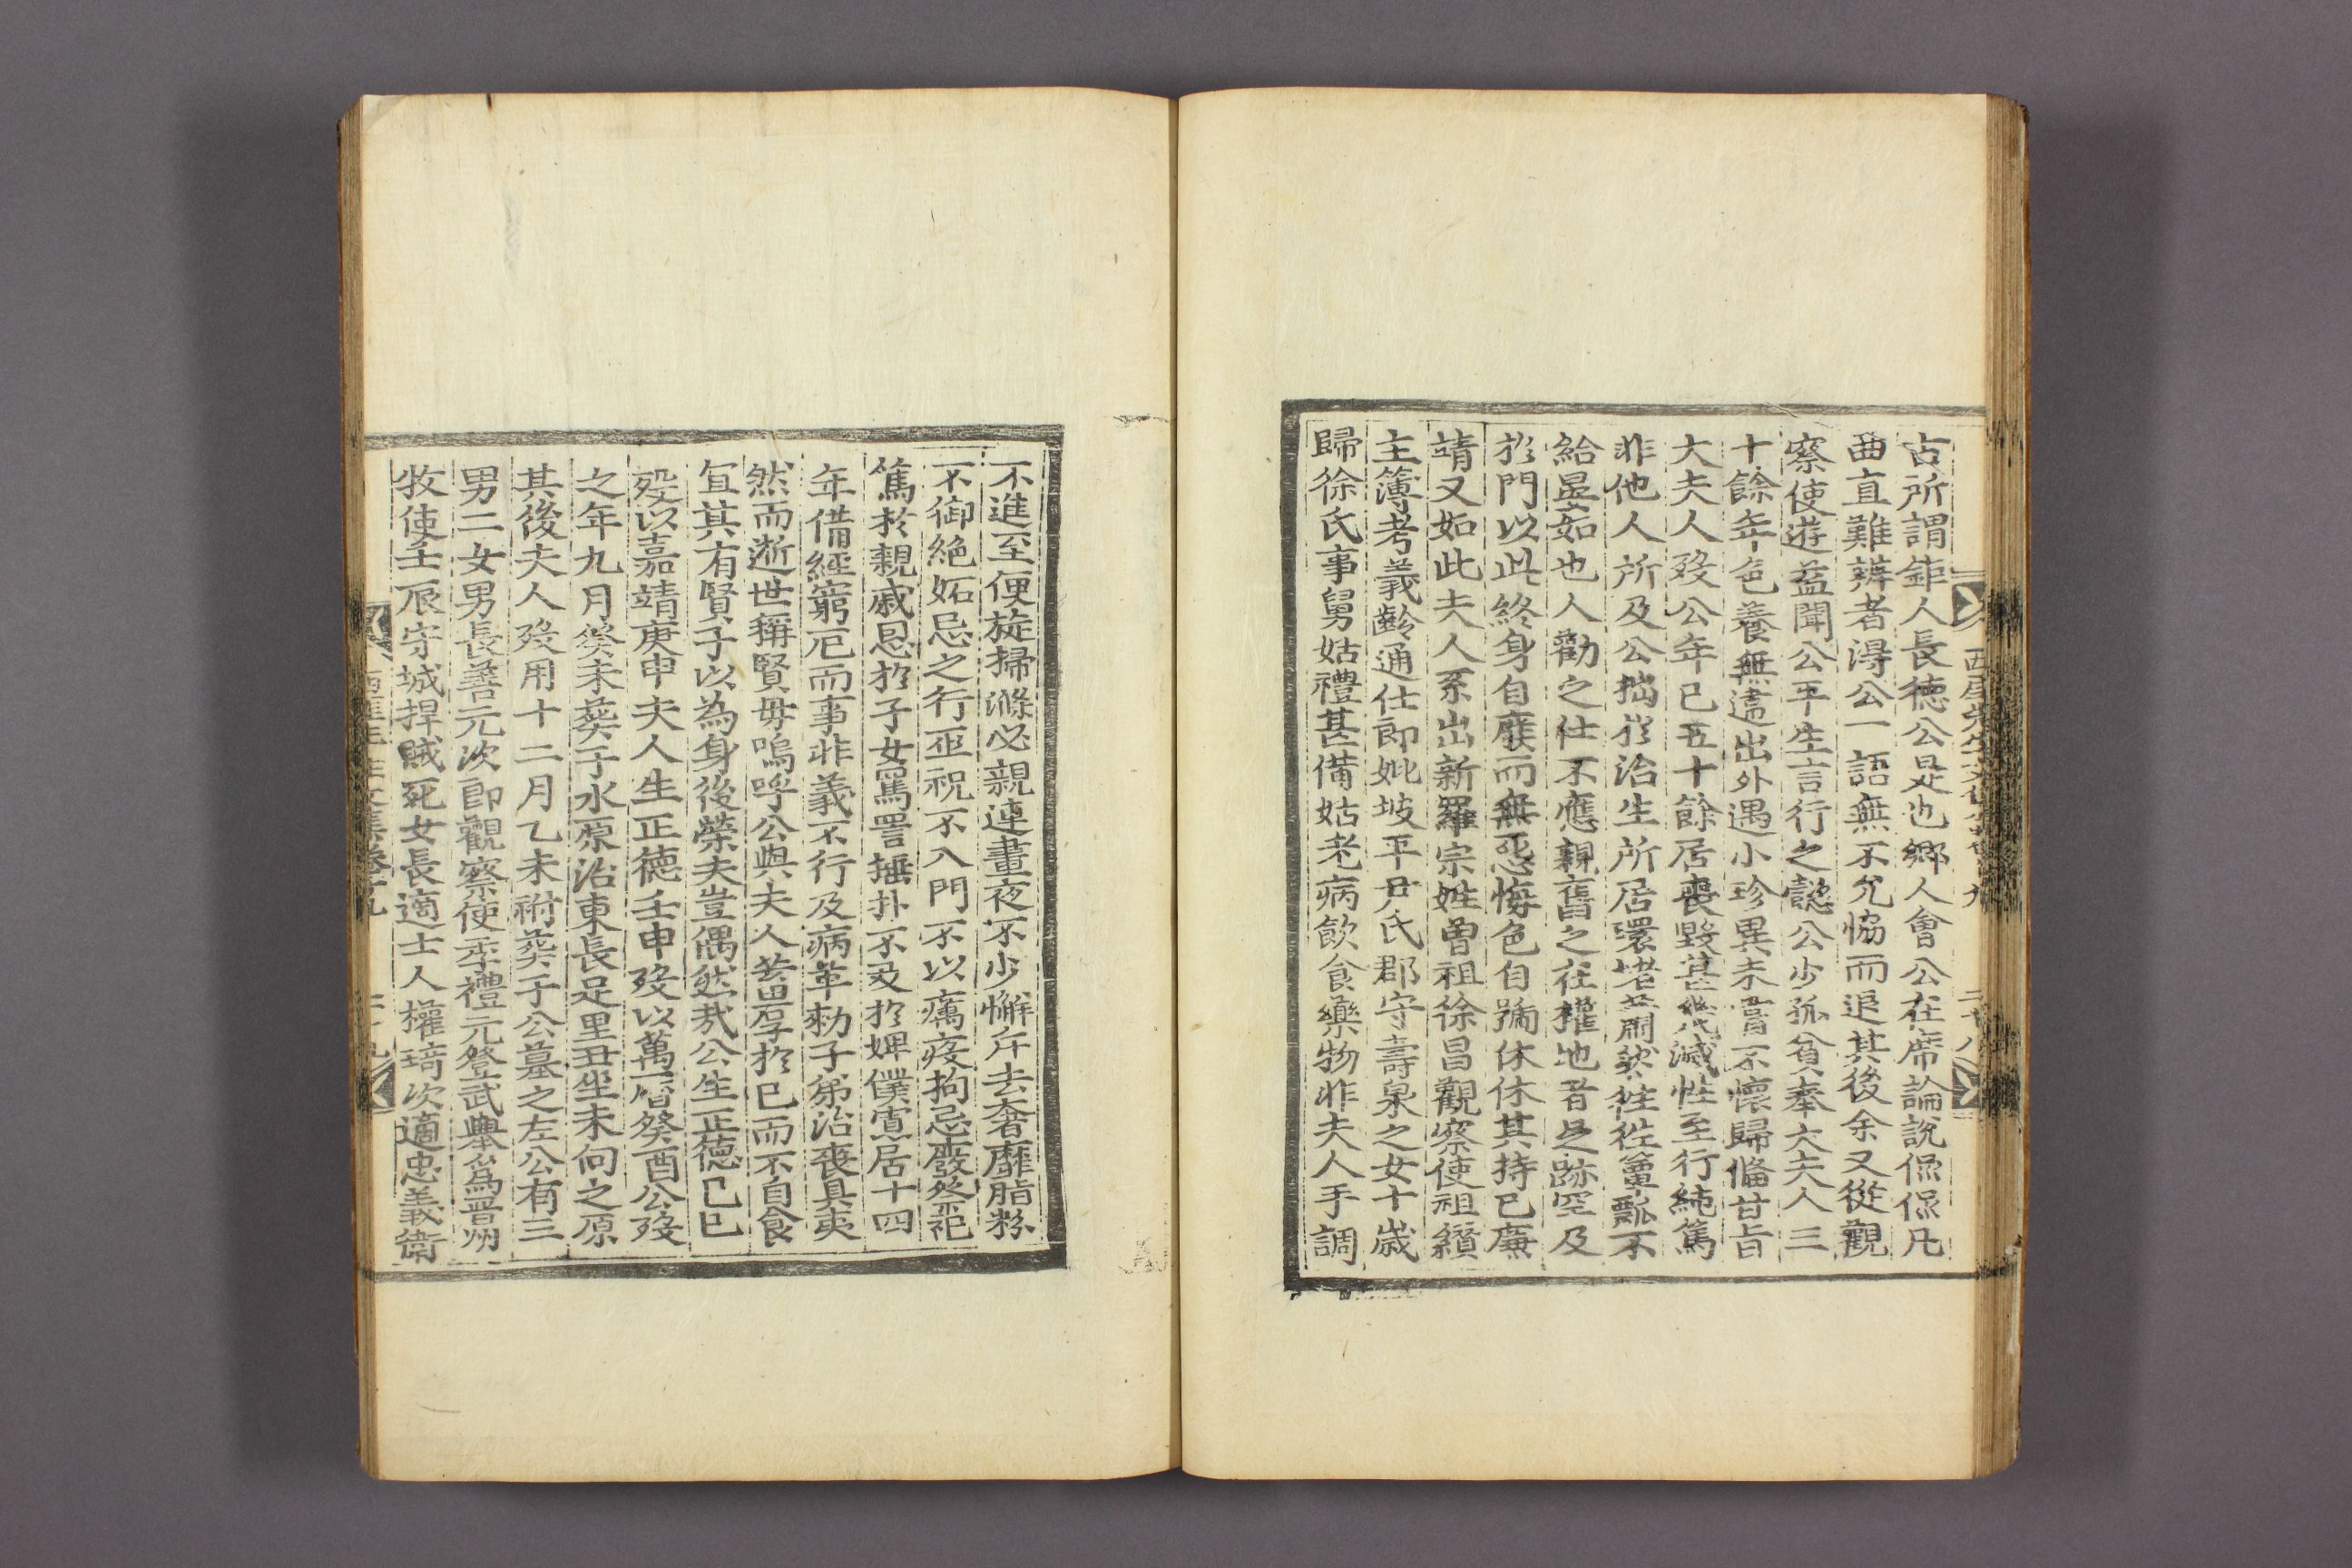 古所謂鉅人長德公是也鄉人會公在席論說侃侃凡
曲直難辨者得公一語無不允恊而退其後余又從觀
察使遊益聞公平生言行之懿公少孤貧奉大夫人三
十餘年色養無違出外遇小珍異未嘗不懷歸俻甘旨
大夫人歿公年已五十餘居喪毀甚幾滅性至行純篤
非他人所及公拙於治生所居環堵蕭然徃徃簞瓢不
給晏如也人勸之仕不應親舊之在權地者足跡罕及
於門以此終身自廢而無惡悔色自號休休其持已廉
靖又如此夫人系出新羅宗姓曾祖徐昌觀察使祖纘
主簿考義齡通仕郎妣坡平尹氏郡守壽泉之女十歲
歸徐氏事舅姑禮甚備姑老病飲食藥物非夫人手調
不進至便旋掃滌必親連晝夜不少懈斥去奢靡脂粉
不御絶妬忌之行巫祝不入門不以癘疫拘忌廢祭祀
篤於親戚恩於子女罵詈捶扑不及於婢僕寡居十四
年備經窮厄而事非義不行及病革勑子弟治喪具夷
然而逝世稱賢母嗚呼公與夫人養厚於已而不自食
冝其有賢子以為身後榮夫豈偶然哉公生正德己巳
歿以嘉靖庚申夫人生正德壬申歿以萬曆癸酉公歿
之年九月癸未葬于水原治東長足里丑坐未向之原
其後夫人歿用十二月乙未祔葬于公墓之左公有三
男二女男長善元次卽觀察使季禮元登武擧爲晋州
牧使壬辰守城捍賊死女長適士人權琦次適忠義衛